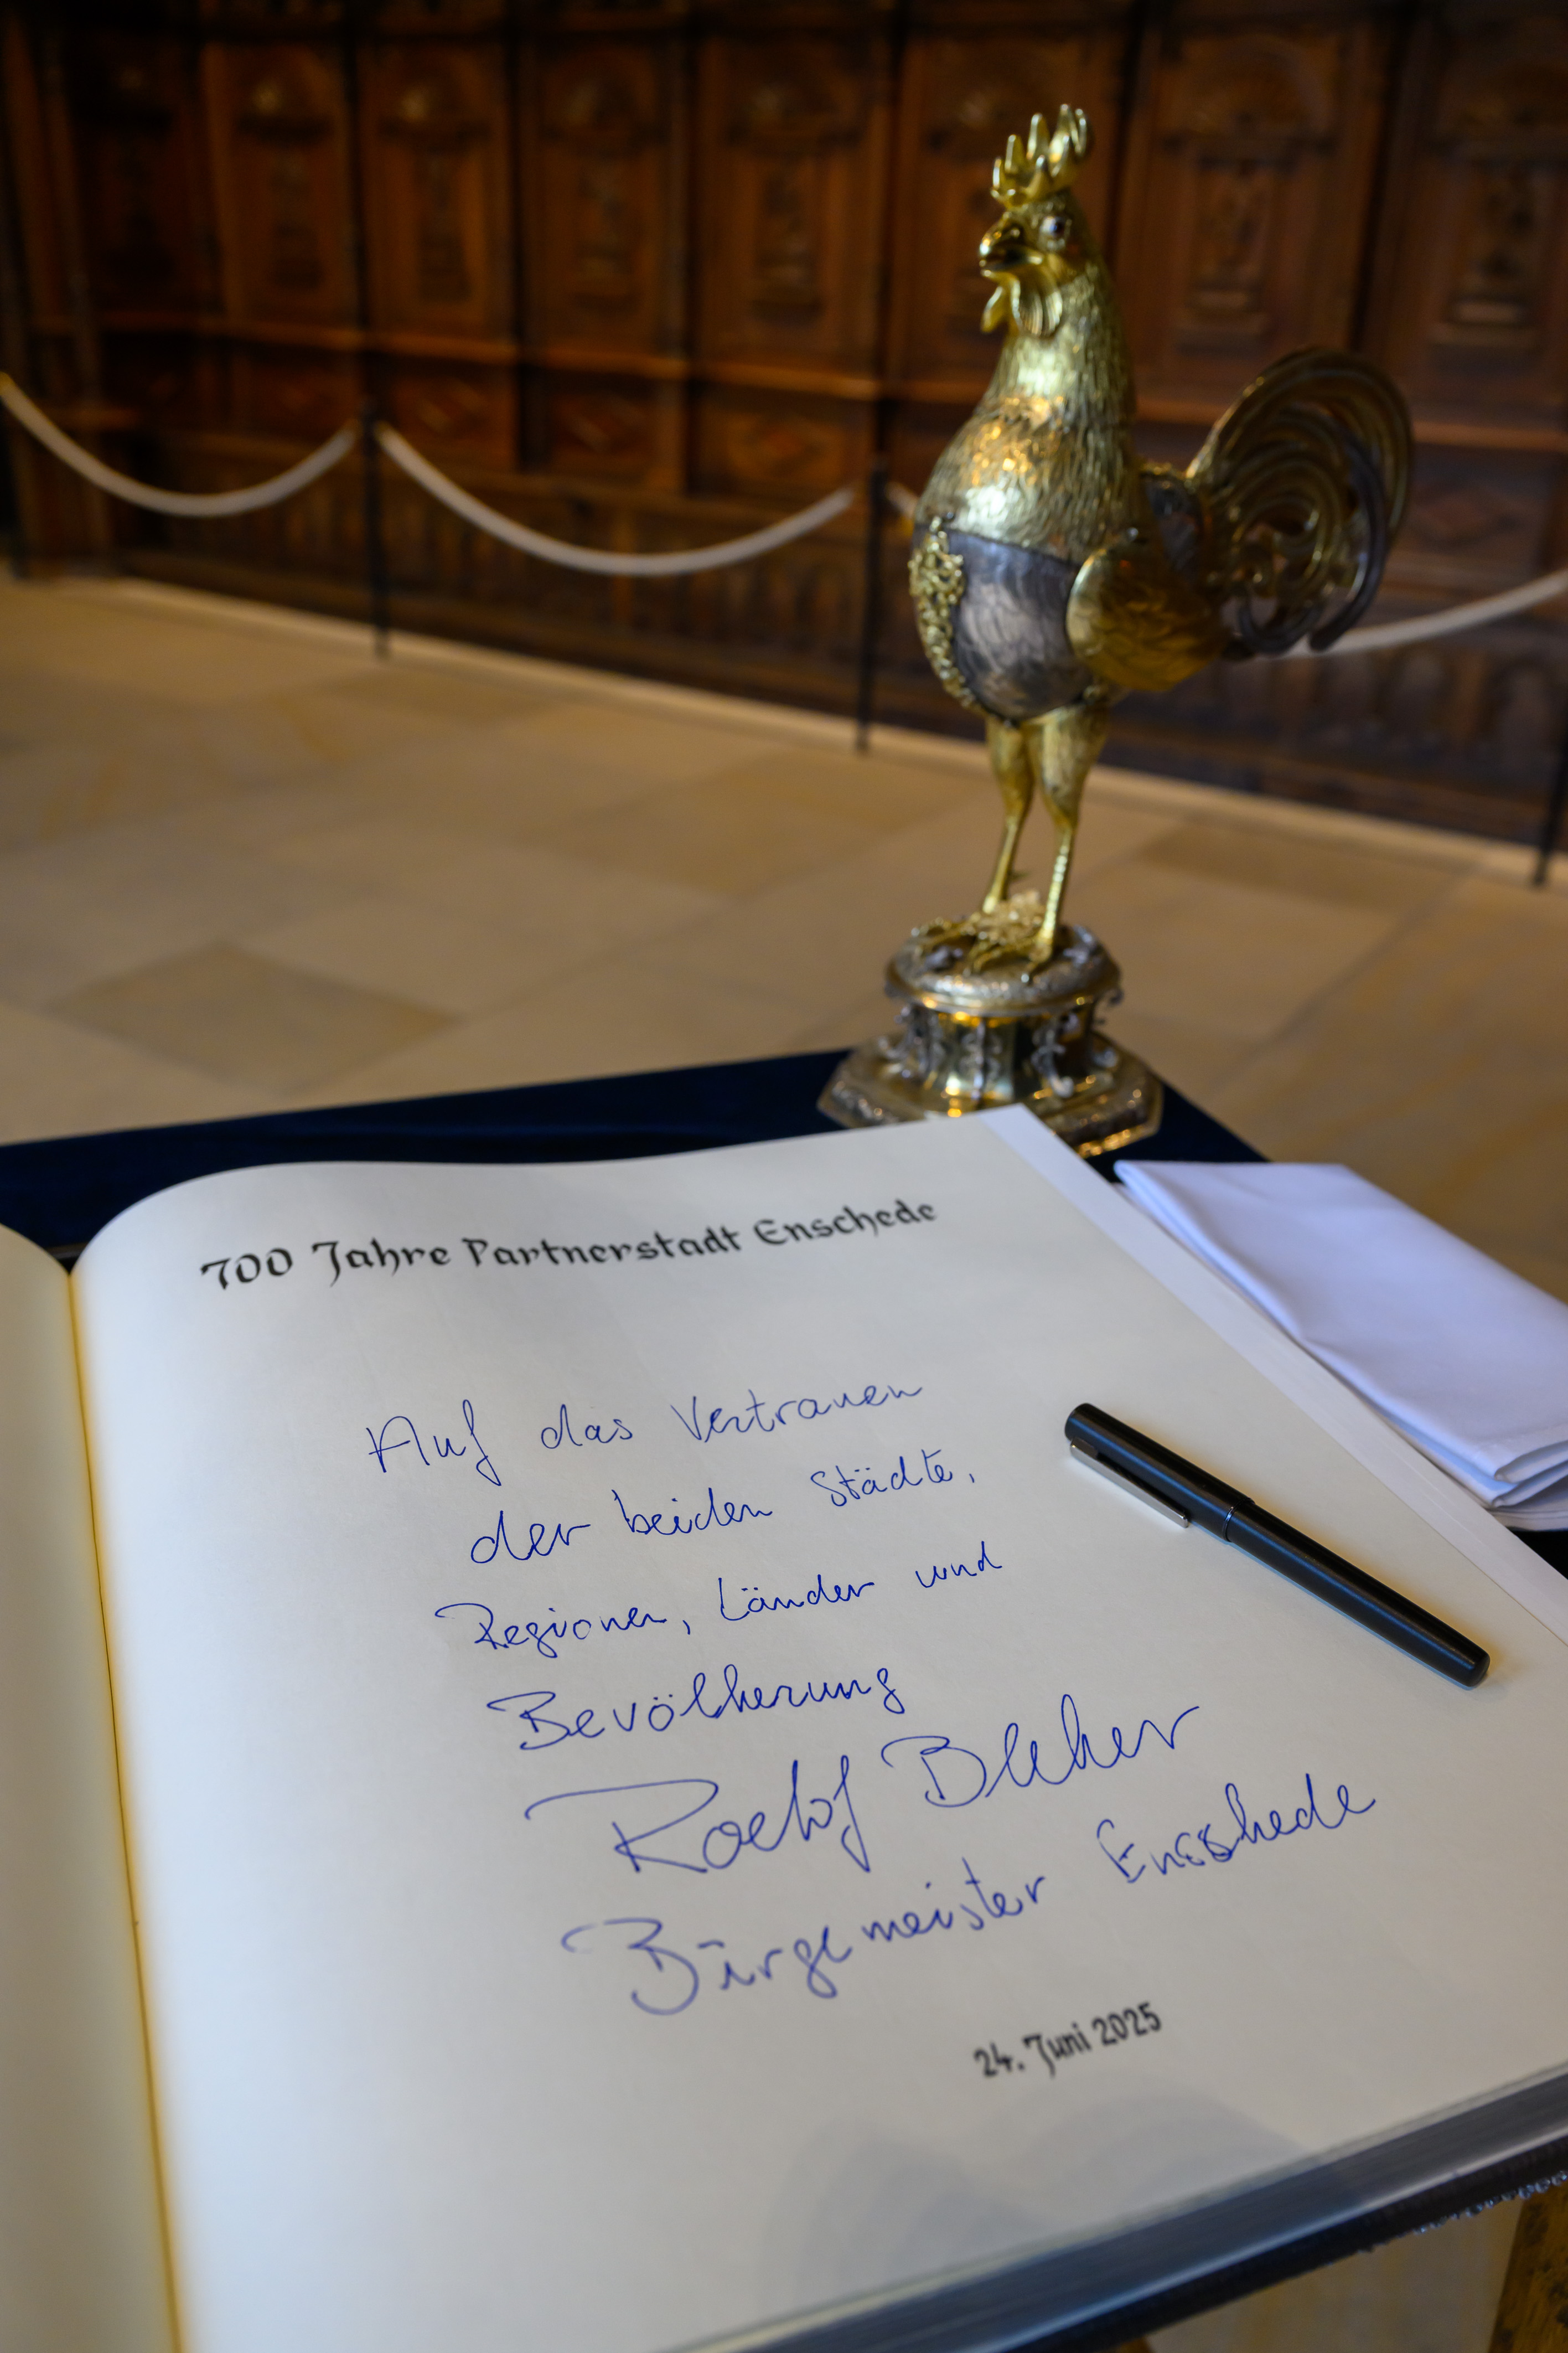 700 Jahre Partnerstadt Enschede
Auf das Vertrauen
der beiden Städte,
Regionen, Länder und
Bevölkerung
Roelof Bleker
Bürgemeister Enschede
24. Juni 2025